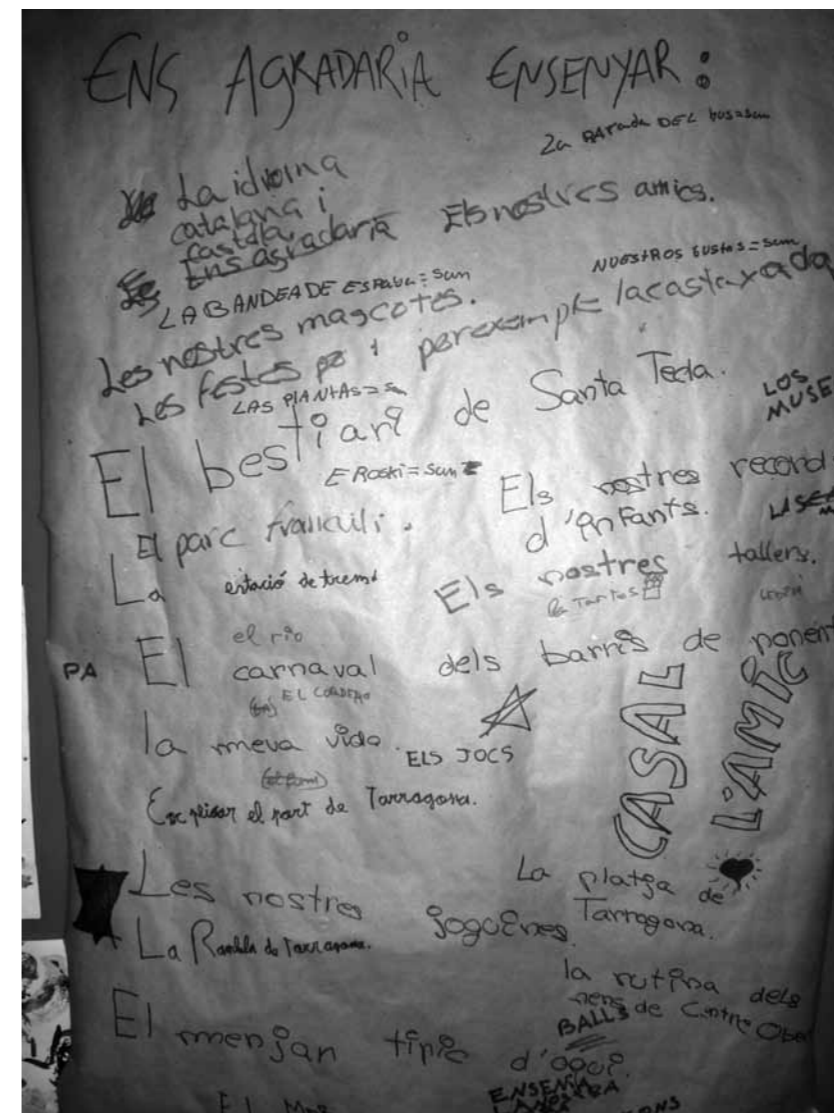 ENS AGRADARIA ENSENYAR:
2a PARada DEL bus=sam
La idioma
catalana i
castella.
Ens agradaria
Els nostres amics.
NUESTROS GUStos=sam
LA BANDEA DE ESPAÑA=sam
Les nostres mascotes.
Les festes per exemple la castanyada
LAS PLANtAS=sam
El bestiari de Santa Tecla.
LOS
MUSE
EROSKi=sam
Els nostres record
d'infants.
El parc franculi.
La estació de trens
Els nostres tallers.
la Tartas
el rio
PA
El carnaval dels barris de ponent
EL CORDERO
la meva vida.
ELS JOCS
CASAL
L'AMIC
Explicar el port de Tarragona.
La platja de
Tarragona.
Les nostres joguines.
La Rambla de Tarragona.
la rutina dels
nens de Centre Ober
BALLS
El menjan típic d'aquí.
ENSENYA
LA NOSTRA
El